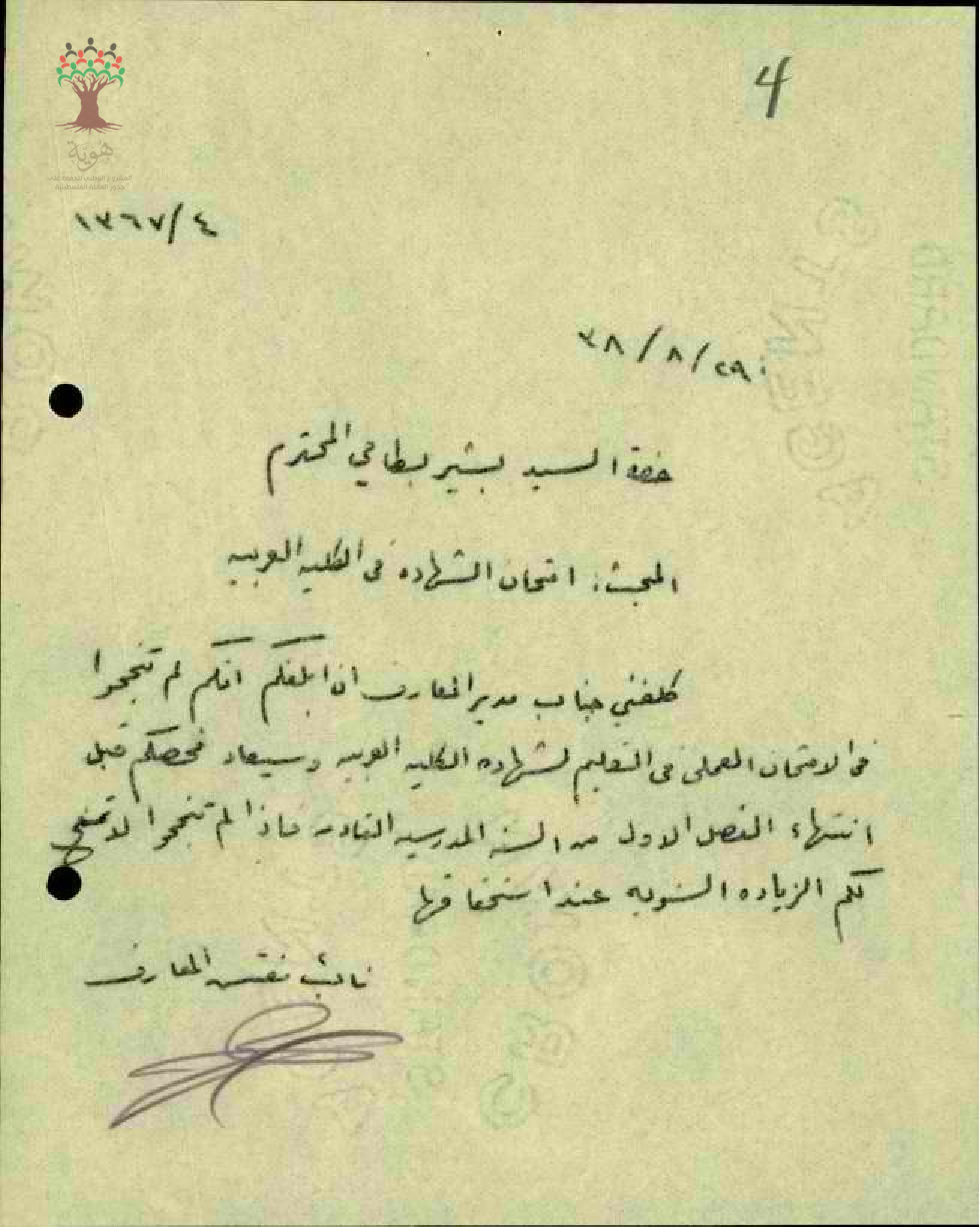 4
هوية
المشروع الوطني للحفاظ على
جذور العائلة الفلسطينية
١٣٦٧/٤
٣٨/٨/٢٩
حضرة السيد بشير بسطامي المحترم
المبحث: امتحان الشهاده في الكليه العربيه
كلفني جناب مدير المعارف ان ابلغكم انكم لم تنجحوا
في الامتحان العملي في التعليم لشهاده الكليه العربيه وسيعاد فحصكم قبل
انتهاء الفصل الاول من السنه المدرسيه القادمه فاذا لم تنجحوا لا تمنح
لكم الزياده السنويه عند استحقاقها
نائب مفتش المعارف